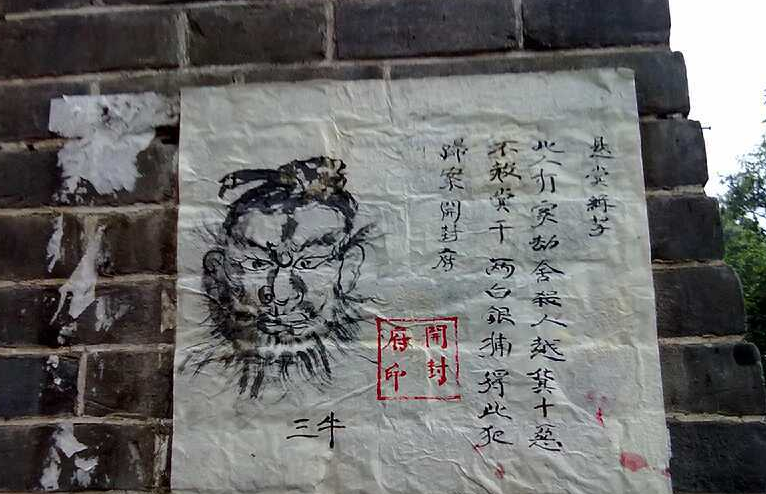 悬赏缉拿
此人打家劫舍殺人越货十惡
不赦赏千两白銀捕得此犯
歸案開封府
開封
府印
牛三